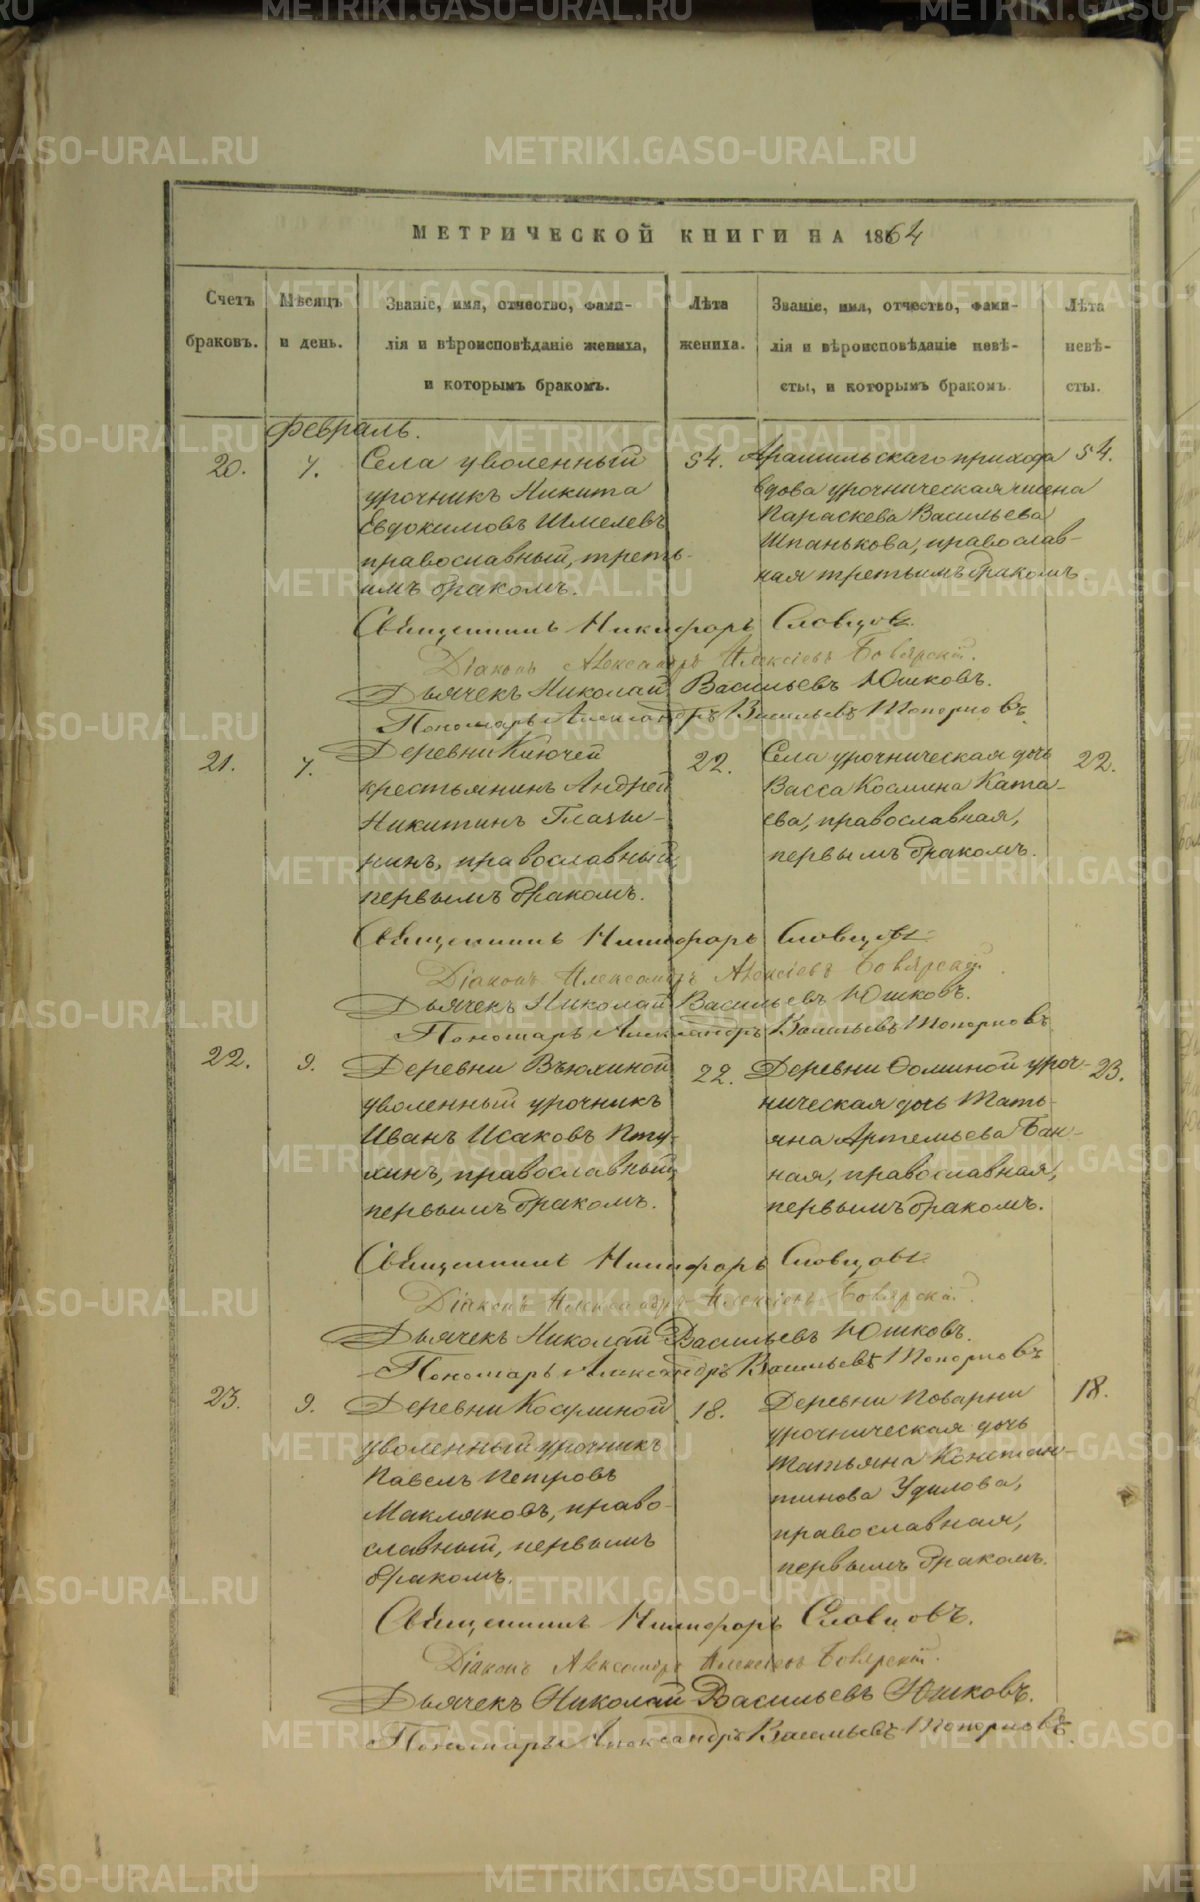 МЕТРИЧЕСКОЙ КНИГИ НА 1864
Счетъ браковъ.
Мѣсяцъ и день.
Званіе, имя, отчество, фами-
лія и вѣроисповѣданіе жениха,
и которымъ бракомъ.
Лѣта жениха.
Званіе, имя, отчество, фами-
лія и вѣроисповѣданіе невѣ-
сты, и которымъ бракомъ.
Лѣта невѣ-
сты.
Февраль.
20.
7.
Села уволенный
урочникъ Никита
Евдокимовъ Шмелевъ
православный, треть-
имъ бракомъ.
54.
Арамильскаго прихода
вдова урочническая жена
Параскева Васильева
Шпанькова, православ-
ная третьимъ бракомъ.
54.
Священникъ Никифоръ Словцовъ.
Діаконъ Александръ Алексіевъ Боярскій.
Дьячекъ Николай Васильевъ Юшковъ.
Пономарь Александръ Васильевъ Топорковъ.
21.
7.
Деревни Ключей
крестьянинъ Андрей
Никитинъ
православный,
первымъ бракомъ.
22.
Села урочническая дочь
Васса Космина Ката-
ева, православная,
первымъ бракомъ.
22.
Священникъ Никифоръ Словцовъ
Діаконъ Александръ Алексіевъ Боярскій.
Дьячекъ Николай Васильевъ Юшковъ.
Пономарь Александръ Васильевъ Топорковъ
22.
9.
Деревни Вьюхиной
уволенный урочникъ
Иванъ Исаковъ Пту-
хинъ, православный,
первымъ бракомъ.
22.
Деревни Ѳоминой уроч-
ническая дочь Тать-
яна Артемьева Бан-
ная, православная,
первымъ бракомъ.
23.
Священникъ Никифоръ Словцовъ
Діаконъ Александръ Алексіевъ Боярскій.
Дьячекъ Николай Васильевъ Юшковъ.
Пономарь Александръ Васильевъ Топорковъ
23.
9.
Деревни Косулиной
уволенный урочникъ
Павелъ Петровъ
Макляковъ, право-
славный, первымъ
бракомъ.
18.
Деревни Поварни
урочническая дочь
Татьяна Констан-
тинова Удилова,
православная,
первымъ бракомъ.
18.
Священникъ Никифоръ Словцовъ.
Діаконъ Александръ Алексіевъ Боярскій.
Дьячекъ Николай Васильевъ Юшковъ.
Пономарь Александръ Васильевъ Топорковъ.
METRIKI.GASO-URAL.RU